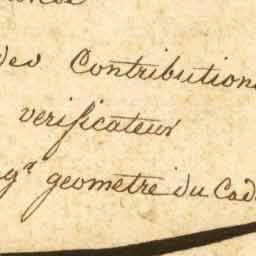 des Contributions
verificateur
geometre du Cad